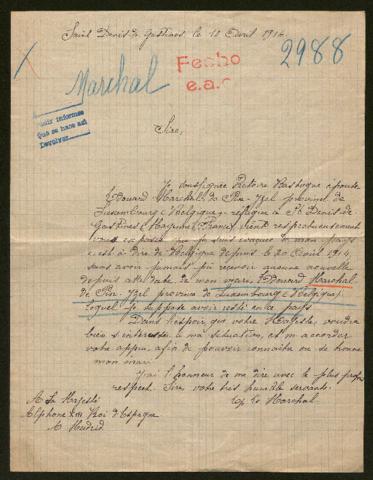 Saint Denis de Gastines le 12 Avril 191
2988
Marchal
Fecho
e.a.c
Pedir informes
Que se hace así
Devolver
Sire,
Je soussignée Victoire épouse
Edouard Marchal de Pin-Izel province de
Luxembourg (Belgique) réfugiée à St Denis de
Gastines (Mayenne) (France) vient respectueusement
vous que je suis de mon pays
c'est à dire de Belgique depuis le 20 1914
sans avoir jamais pu recevoir aucune nouvelle
depuis cette date de mon mari Edouard Marchal
de Pin-Izel province de Luxembourg (Belgique)
lequel je suppose avoir resté en ce pays
Dans l'espoir que votre Majesté, voudra
bien s'intéresser à ma situation, et m'accorder
votre appui afin de pouvoir connaître où se trouve
mon mari
J'ai l'honneur de me dire avec le plus profond
respect. Sire votre très humble servante.
A Sa Majesté
Marchal
Alphonse XIII Roi d'Espagne
A Madrid